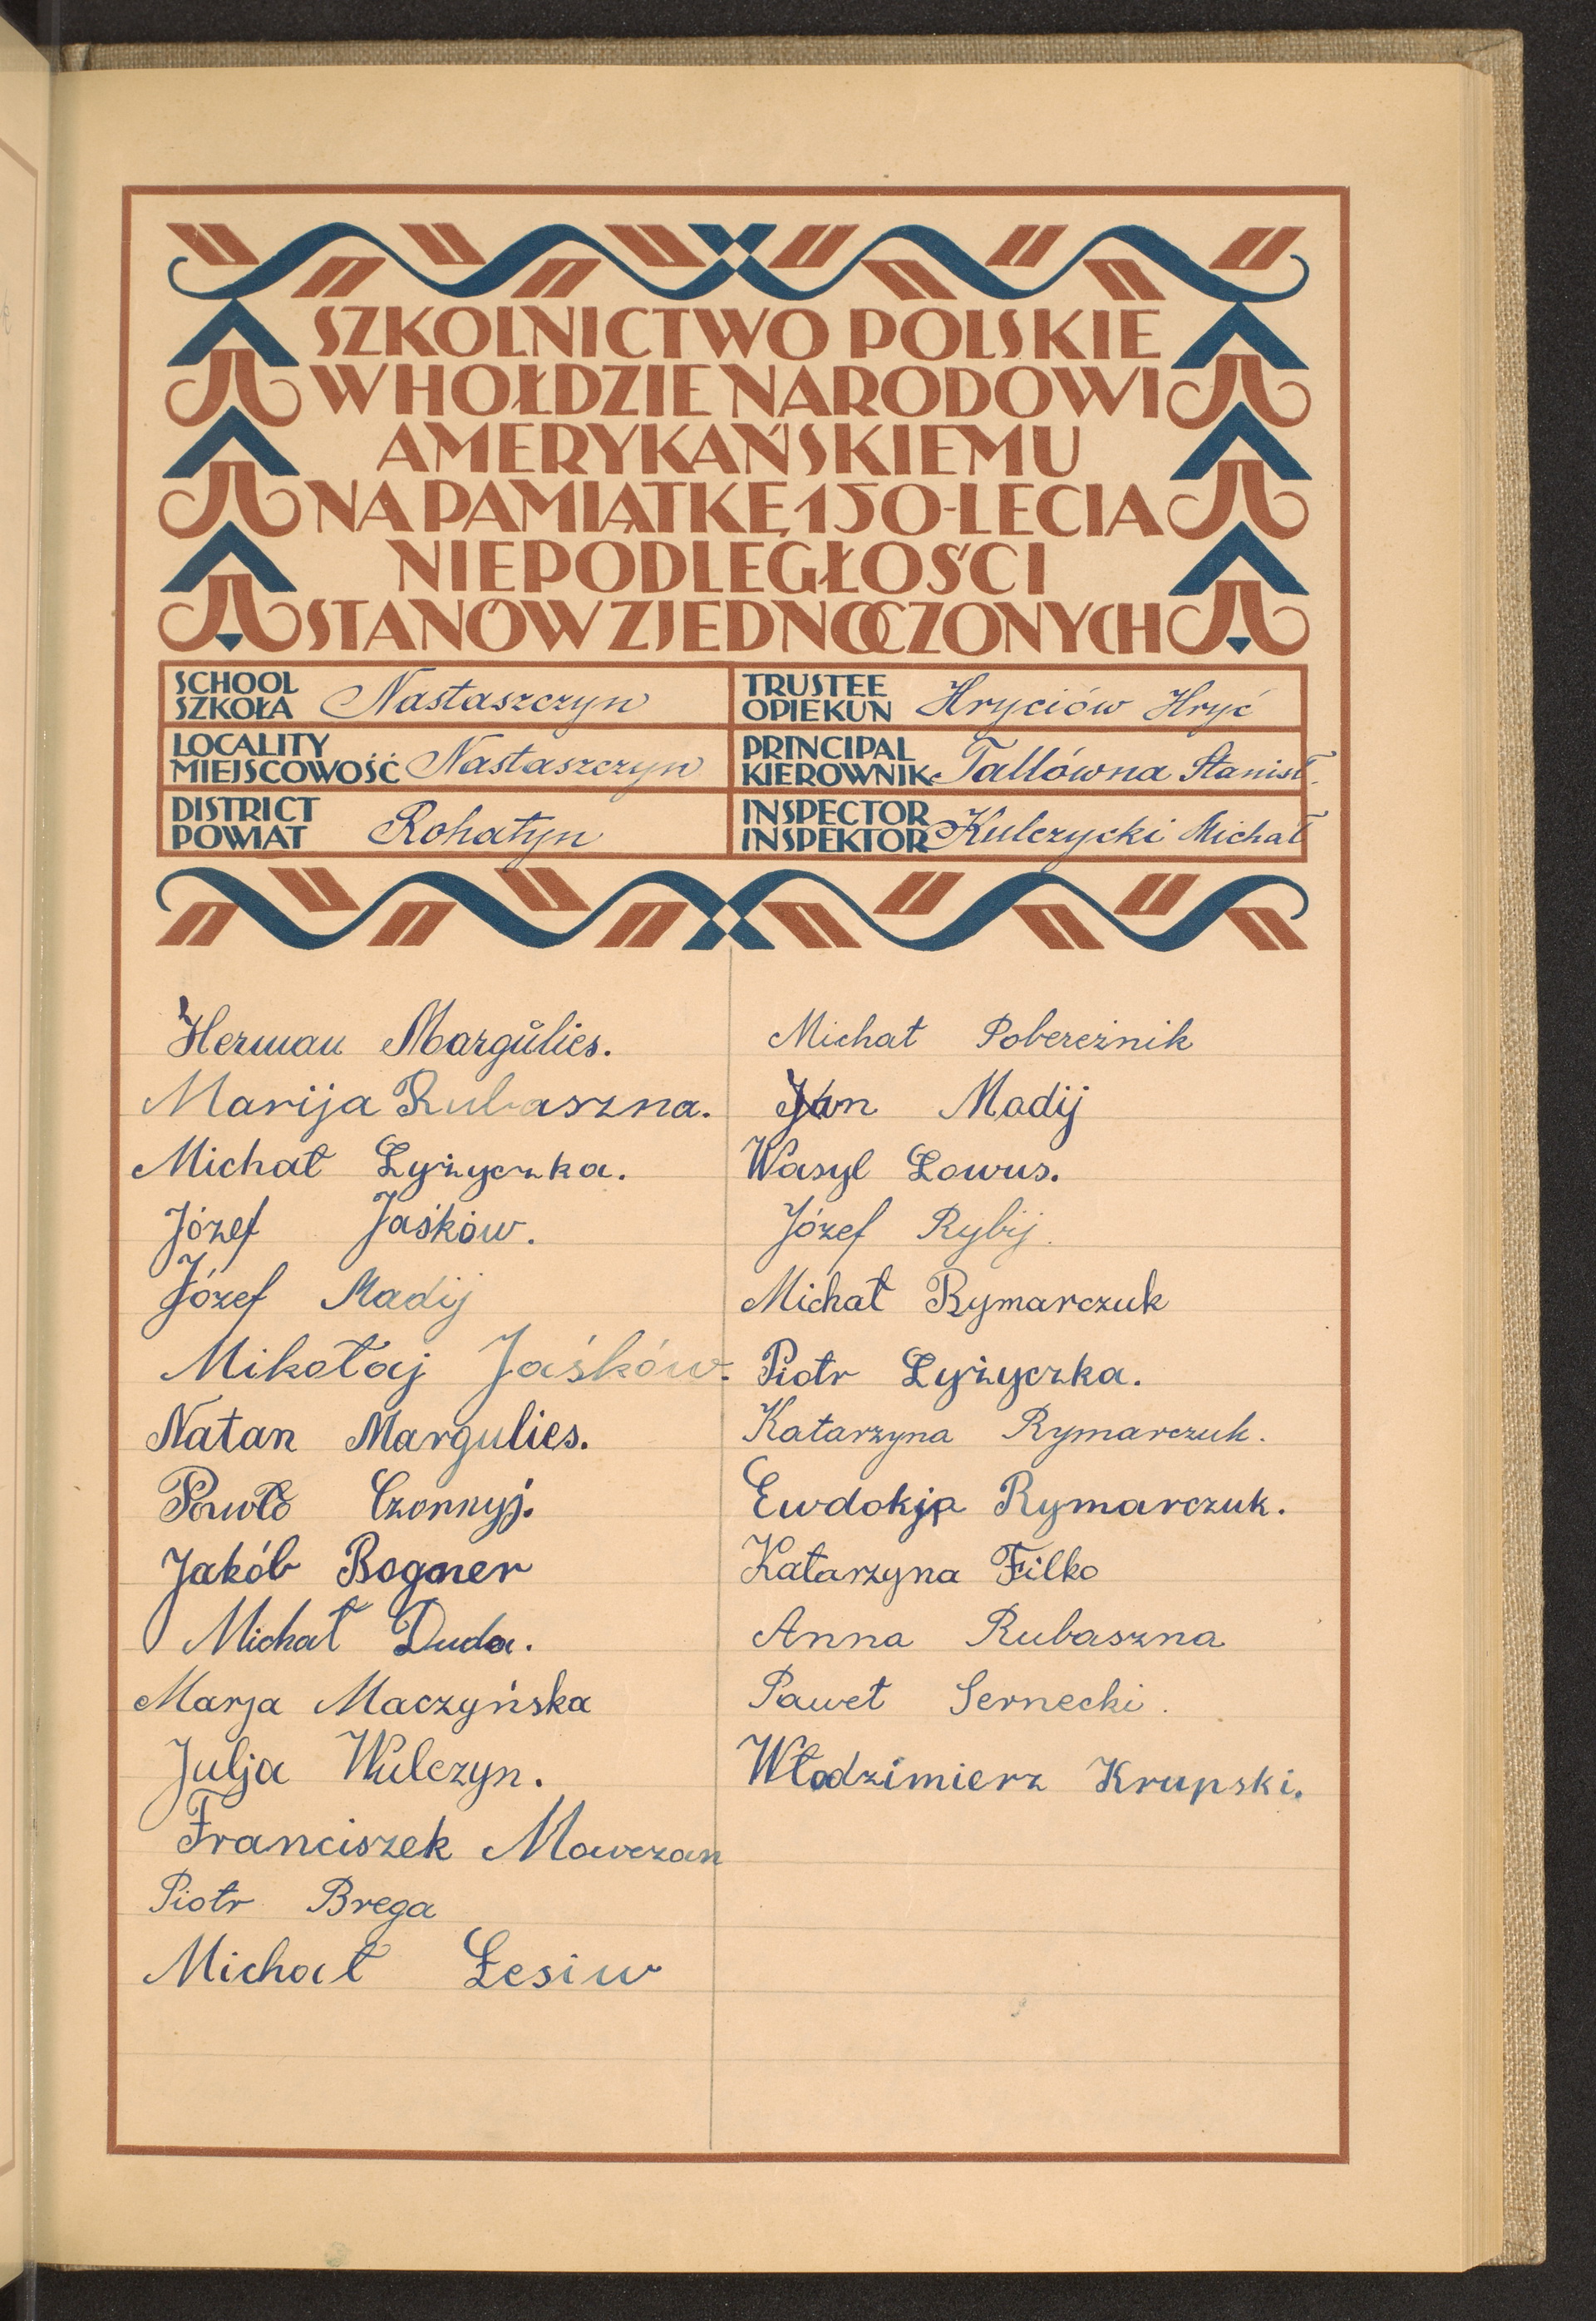 SZKOLNICTWO POLSKIE
W HOŁDZIE NARODOWI
AMERYKAŃSKIEMU
NA PAMIĄTKĘ 150-LECIA
NIEPODLEGŁOŚCI
STANÓW ZJEDNOCZONYCH
SCHOOL
SZKOŁA Nastaszczyn
LOCALITY
MIEJSCOWOŚĆ Nastaszczyn
DISTRICT
POWIAT Rohatyn
TRUSTEE
OPIEKUN Hryciów Hryć
PRINCIPAL
KIEROWNIK Tallówna Stanisł.
INSPECTOR
INSPEKTOR Kulczycki Michał
Herman Margŭlies.
Marija Rubaszna.
Michał Łyżyczka.
Józef Jaśków.
Józef Madij
Mikołaj Jaśków.
Natan Margulies.
Pawło Czornyj.
Jakób Bogner
Michał Duda.
Marja Maczyńska
Julja Wulczyn.
Franciszek Mowczan
Piotr Brega
Michał Łesiw
Michał Pobereżnik
Jan Madij
Wasyl Łowus.
Józef Rybij.
Michał Rymarczuk
Piotr Łyżyczka.
Katarzyna Rymarczuk.
Ewdokja Rymarczuk.
Katarzyna Filko
Anna Rubaszna
Paweł Sernecki.
Włodzimierz Krupski.